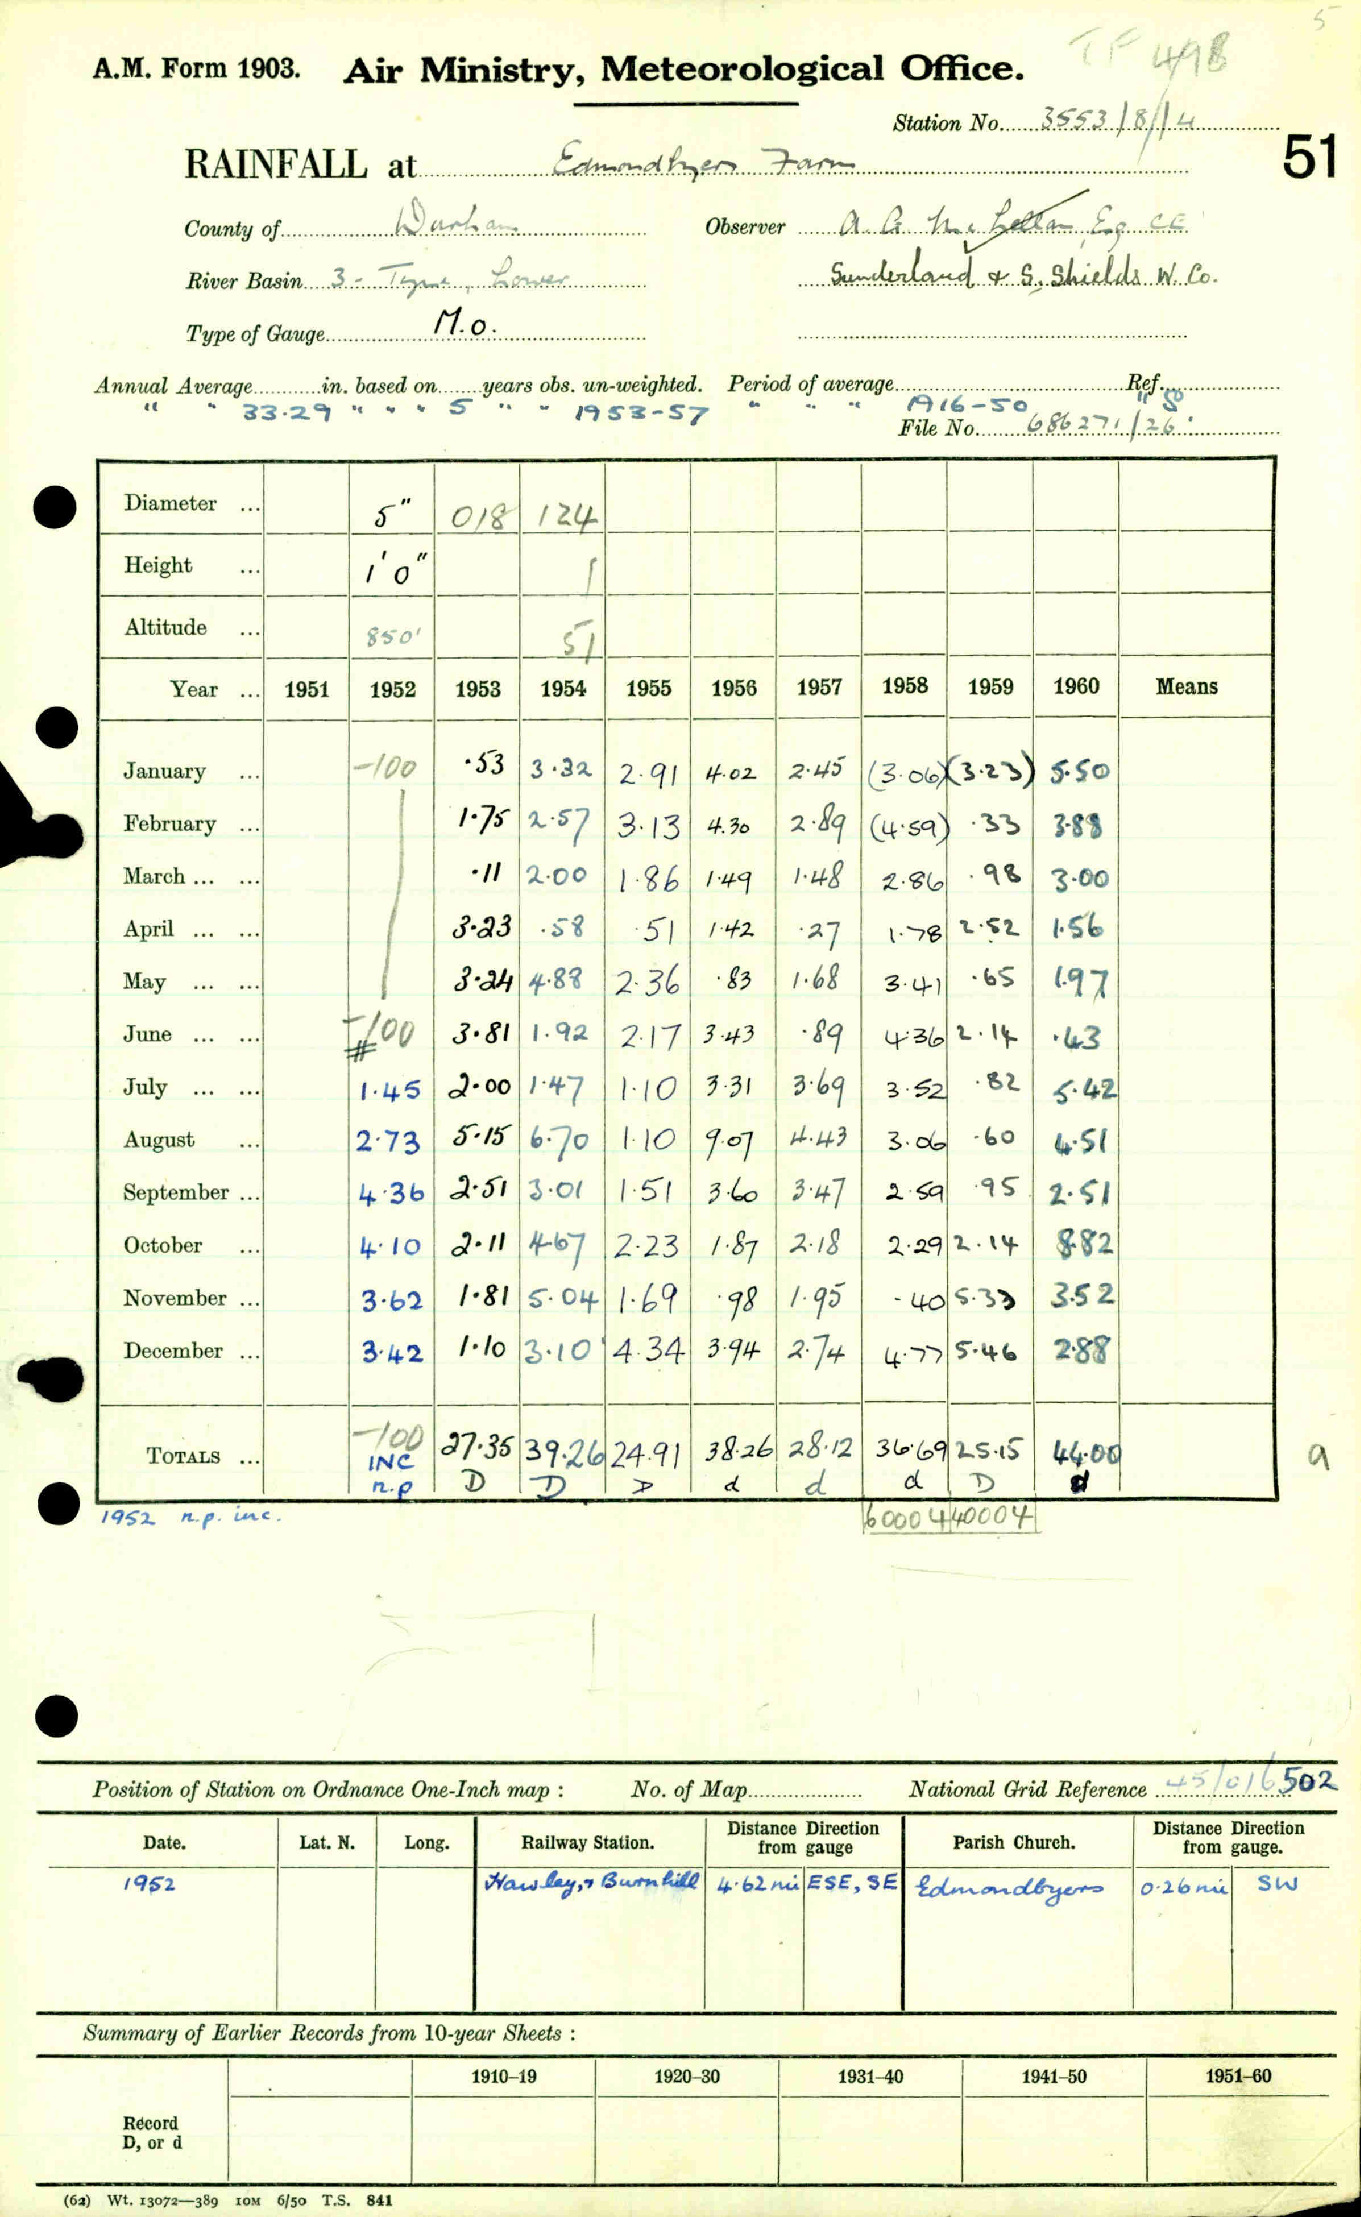 5
TF 498
A.M. Form 1903. Air Ministry, Meteorological Office.
Station No. 3553/8/14
51
RAINFALL at Edmondbyers Farm
County of Durham Observer A. G. McLellan, Esq CE
River Basin 3 - Tyne, Lower Sunderland & S. Shields W. Co.
Type of Gauge M.O.
Annual Average in. based on years obs. un-weighted. Period of average Ref.
" " 33.29 " " " 5 " " 1953-57 " " " 1916-50 " S
File No. 686271/26
Diameter ... 5" 018 124
Height ... 1' 0" 1
Altitude ... 850' 51
Year ... 1951 1952 1953 1954 1955 1956 1957 1958 1959 1960 Means
January ... -100 .53 3.32 2.91 4.02 2.45 (3.06) (3.23) 5.50
February ... 1.75 2.57 3.13 4.30 2.89 (4.59) .33 3.88
March ... ... .11 2.00 1.86 1.49 1.48 2.86 .98 3.00
April ... ... 3.23 .58 .51 1.42 .27 1.78 2.52 1.56
May ... ... 3.24 4.88 2.36 .83 1.68 3.41 .65 1.97
June ... ... -100 # 3.81 1.92 2.17 3.43 .89 4.36 2.14 .43
July ... ... 1.45 2.00 1.47 1.10 3.31 3.69 3.52 .82 5.42
August ... 2.73 5.15 6.70 1.10 9.07 4.43 3.06 .60 4.51
September ... 4.36 2.51 3.01 1.51 3.60 3.47 2.59 .95 2.51
October ... 4.10 2.11 4.67 2.23 1.87 2.18 2.29 2.14 8.82
November ... 3.62 1.81 5.04 1.69 .98 1.95 .40 5.33 3.52
December ... 3.42 1.10 3.10 4.34 3.94 2.74 4.77 5.46 2.88
TOTALS ... -100 27.35 39.26 24.91 38.26 28.12 36.69 25.15 44.00 a
INC
n.p D D D d d d D d
1952 n.p. inc. 60004 40004
Position of Station on Ordnance One-Inch map : No. of Map National Grid Reference 45/016 502
Date. Lat. N. Long. Railway Station. Distance from Direction gauge Parish Church. Distance from Direction gauge.
1952 Burnhill 4.62 mi ESE, SE Edmondbyers 0.26 mi SW
Summary of Earlier Records from 10-year Sheets :
1910–19 1920–30 1931–40 1941–50 1951–60
Record
D, or d
(62) Wt. 13072—389 10M 6/50 T.S. 841